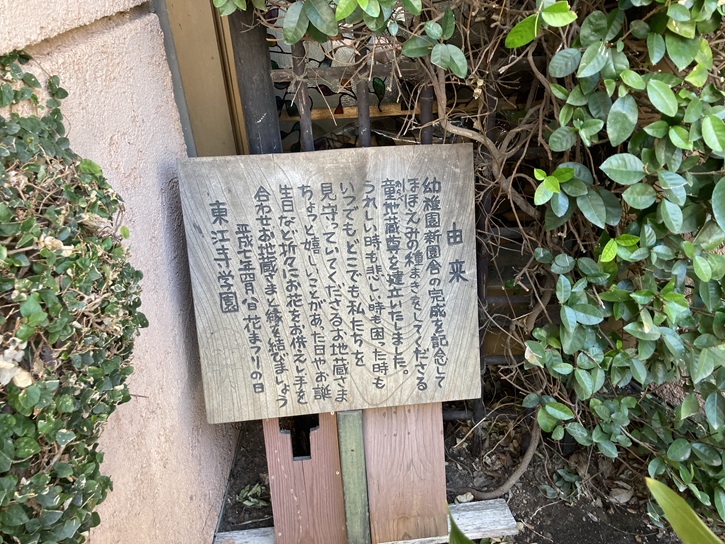 由来
幼稚園新園舎の完成を記念して
まほえみの種まきをしてくださる
童地蔵尊を建立いたしました。
うれしい時も悲しい時も困った時も
いつでもどこでも私たちを
見守っていてくださるお地蔵さま
ちょっと嬉しいことがあった日やお誕
生日など折々にお花をお供えし手を
合わせお地蔵さまと縁を結びましょう
平成十七年四月八日花まつりの日
東江寺学園